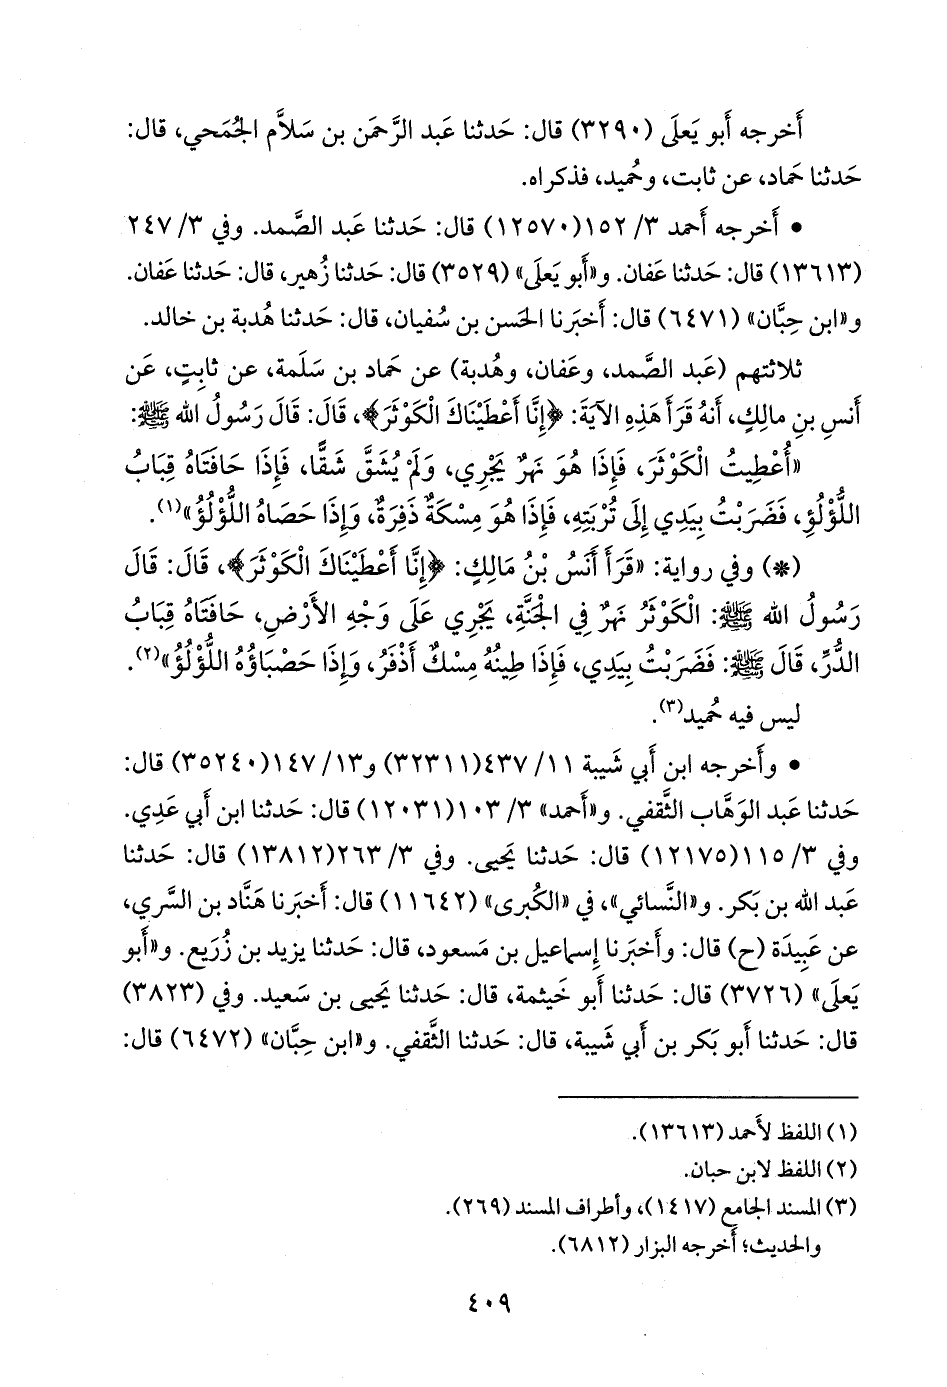 أَخرجه أَبو يَعلَى (٣٢٩٠) قال: حَدثنا عَبد الرَّحمَن بن سَلاَّم الجُمَحي، قال:
حَدثنا حَماد، عن ثابت، وحُميد، فذكراه.
• أَخرجه أَحمد ٣/ ١٥٢(١٢٥٧٠) قال: حَدثنا عَبد الصَّمد. وفي ٣/ ٢٤٧
(١٣٦١٣) قال: حَدثنا عَفان. و«أَبو يَعلَى» (٣٥٢٩) قال: حَدثنا زُهير، قال: حَدثنا عَفان.
و«ابن حِبَّان» (٦٤٧١) قال: أَخبَرنا الحَسن بن سُفيان، قال: حَدثنا هُدبة بن خالد.
ثلاثتهم (عَبد الصَّمد، وعَفان، وهُدبة) عن حَماد بن سَلَمة، عن ثابِتٍ، عَن
أَنسِ بنِ مالِكٍ، أَنهُ قَرَأَ هَذِهِ الآيَةَ: ﴿إِنَّا أَعْطَيْنَاكَ الْكَوْثَرَ﴾، قَالَ: قَالَ رَسُولُ الله ﷺ:
«أُعْطِيتُ الْكَوْثَرَ، فَإِذَا هُوَ نَهَرٌ يَجْرِي، وَلَمْ يُشَقَّ شَقًّا، فَإِذَا حَافَتَاهُ قِبَابُ
اللُّؤْلُؤِ، فَضَرَبْتُ بِيَدِي إِلَى تُرْبَتِهِ، فَإِذَا هُوَ مِسْكَةٌ ذَفِرَةٌ، وَإِذَا حَصَاهُ اللُّؤْلُؤُ»(١).
(*) وفي رواية: «قَرَأَ أَنَسُ بْنُ مَالِكٍ: ﴿إِنَّا أَعْطَيْنَاكَ الْكَوْثَرَ﴾، قَالَ: قَالَ
رَسُولُ الله ﷺ: الْكَوْثَرُ نَهَرٌ فِي الجَنَّةِ، يَجْرِي عَلَى وَجْهِ الأَرْضِ، حَافَتَاهُ قِبَابُ
الدُّرِّ، قَالَ ﷺ: فَضَرَبْتُ بِيَدِي، فَإِذَا طِينُهُ مِسْكٌ أَذْفَرُ، وَإِذَا حَصْبَاؤُهُ اللُّؤْلُؤُ»(٢).
ليس فيه حُميد(٣).
• وأَخرجه ابن أَبي شَيبة ١١/ ٤٣٧(٣٢٣١١) و١٣/ ١٤٧(٣٥٢٤٠) قال:
حَدثنا عَبد الوَهَّاب الثَّقفي. و«أَحمد» ٣/ ١٠٣(١٢٠٣١) قال: حَدثنا ابن أَبي عَدِي.
وفي ٣/ ١١٥(١٢١٧٥) قال: حَدثنا يَحيى. وفي ٣/ ٢٦٣(١٣٨١٢) قال: حَدثنا
عَبد الله بن بَكر. و«النَّسائي»، في «الكُبرى» (١١٦٤٢) قال: أَخبَرنا هَنَّاد بن السَّري،
عن عَبِيدَة (ح) قال: وأَخبَرنا إِسماعيل بن مَسعود، قال: حَدثنا يزيد بن زُرَيع. و«أَبو
يَعلَى» (٣٧٢٦) قال: حَدثنا أَبو خَيثمة، قال: حَدثنا يَحيى بن سَعيد. وفي (٣٨٢٣)
قال: حَدثنا أَبو بَكر بن أَبي شَيبة، قال: حَدثنا الثَّقفي. و«ابن حِبَّان» (٦٤٧٢) قال:
(١) اللفظ لأَحمد (١٣٦١٣).
(٢) اللفظ لابن حبان.
(٣) المسند الجامع (١٤١٧)، وأطراف المسند (٢٦٩).
والحديث؛ أَخرجه البزار (٦٨١٢).
٤٠٩